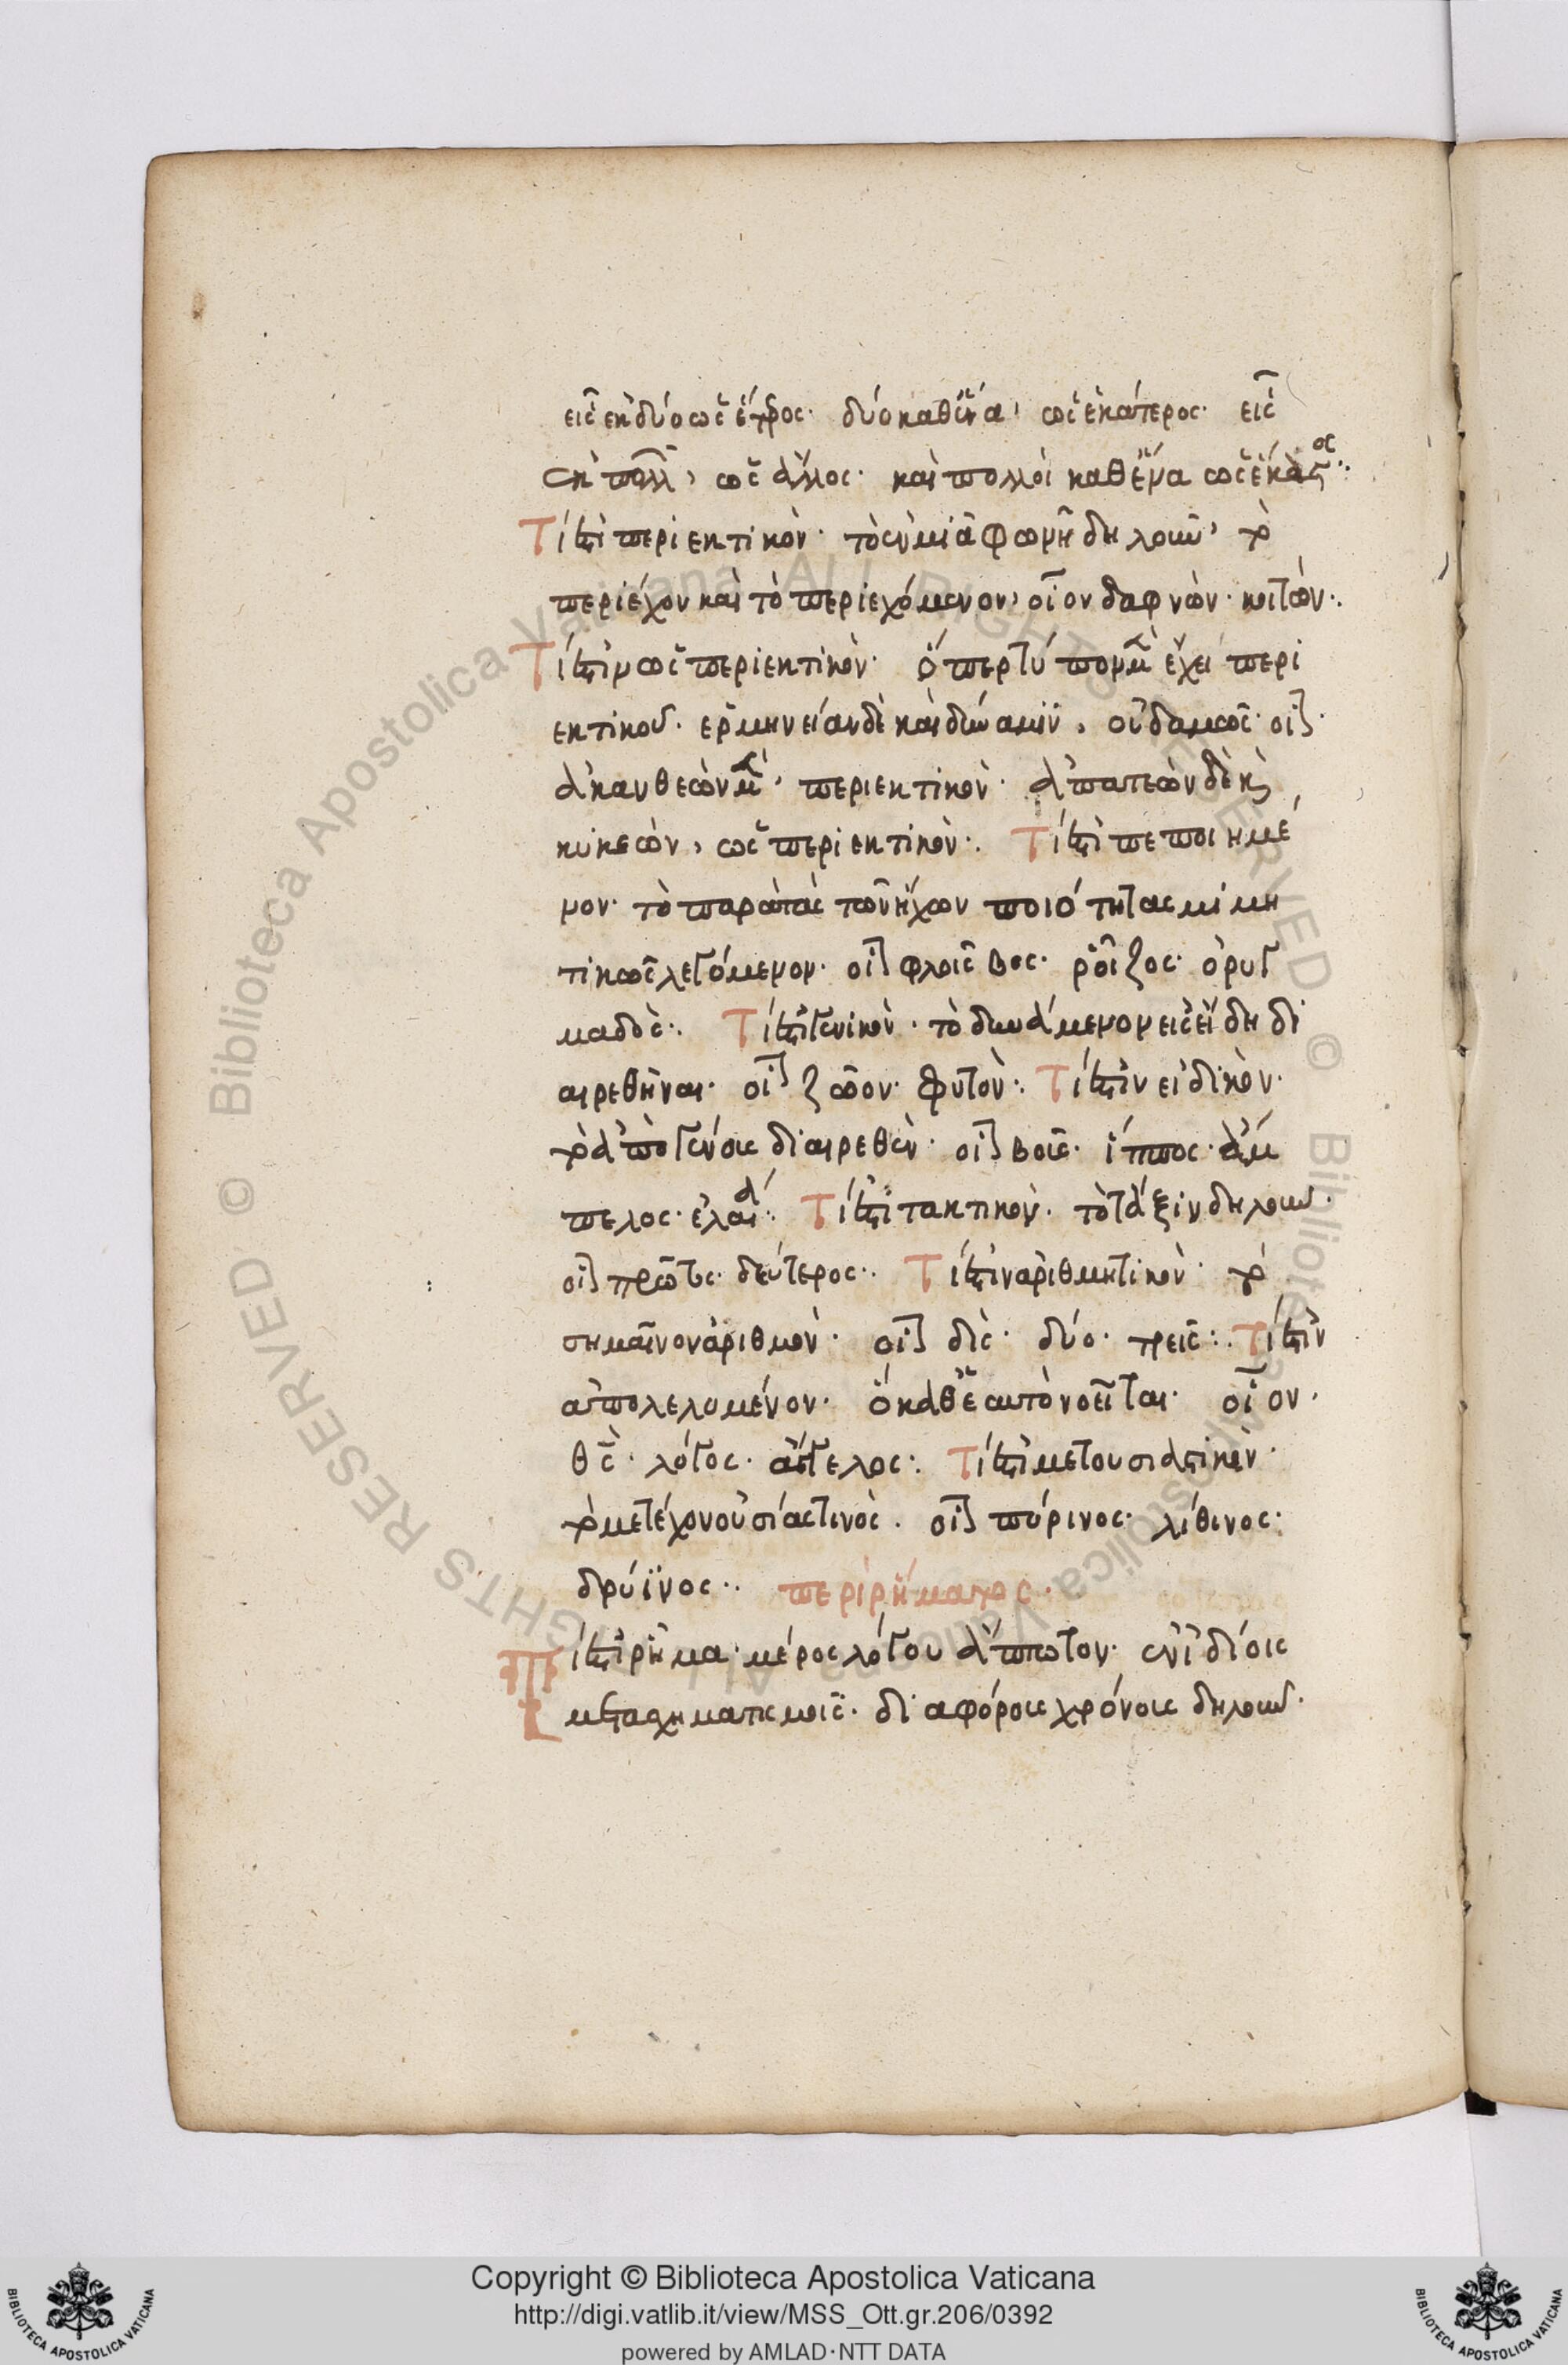 εἷς ἐκ δύο ὡς ἕτερος· δύο καθένα, ὡς ἑκάτερος· εἷς
ἐκ πολλῶν, ὡς ἄλλος· καὶ πολλοὶ καθένα ὡς ἕκαστος:
Τί ἐστι περιεκτικόν· τὸ ἐν μιᾷ φωνῇ δηλοῦν, τὸ
περιέχον καὶ τὸ περιεχόμενον, οἷον δαφνών· κοιτών:
Τί ἐστιν ὡς περιεκτικόν· ὅπερ τύπον μὲν ἔχει περι
εκτικοῦ· ἑρμηνείαν δὲ καὶ δύναμιν, οὐδαμῶς· οἷον
ἀκανθεὼν μὲν, περιεκτικόν· ἀπατεὼν δὲ καὶ
κυκεών, ὡς περιεκτικόν: Τί ἐστι πεποιημέ
νον· τὸ παρὰ τὰς τῶν ἤχων ποιότητας μιμη
τικῶς λεγόμενον· οἷον φλοῖσβος· ῥοῖζος· ὀρυγ
μαδός: Τί ἐστι γενικόν· τὸ δυνάμενον εἰς εἴδη δι
αιρεθῆναι· οἷον ζῶον· φυτόν: Τί ἐστιν εἰδικόν·
τὸ ἀπὸ γένους διαιρεθέν· οἷον βοῦς· ἵππος· ἄμ
πελος· ἐλαία: Τί ἐστι τακτικόν· τὸ τάξιν δηλοῦν·
οἷον πρῶτος· δεύτερος: Τί ἐστιν ἀριθμητικόν· τὸ
σημαῖνον ἀριθμόν· οἷον δίς· δύο· τρεῖς: Τί ἐστιν
ἀπολελυμένον· ὃ καθ' ἑαυτὸ νοεῖται· οἷον·
θς· λόγος· ἄγγελος: Τί ἐστι μετουσιαστικόν·
τὸ μετέχον οὐσίας τινός· οἷον πύρινος· λίθινος·
δρύϊνος: περὶ ῥήματος·
Τί ἐστι ῥῆμα· μέρος λόγου ἄπτωτον· ἐν ἰδίοις
μετασχηματισμοῖς· διαφόρους χρόνους δηλοῦν·
Copyright © Biblioteca Apostolica Vaticana
http://digi.vatlib.it/view/MSS_Ott.gr.206/0392
powered by AMLAD·NTT DATA
BIBLIOTECA APOSTOLICA VATICANA
BIBLIOTECA APOSTOLICA VATICANA
Biblioteca Apostolica Vaticana ALL RIGHTS RESERVED © Biblioteca Apostolica Vaticana ALL RIGHTS RESERVED ©